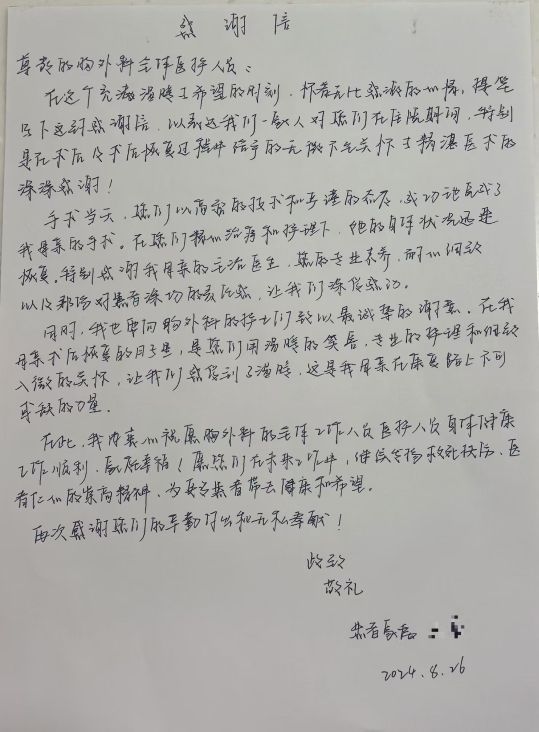 感谢信
尊敬的胸外科全体医护人员：
在这个充满温暖与希望的时刻，怀着无比感激的心情，提笔
写下这封感谢信，以表达我们一家人对您们在住院期间，特别
是在术后及术后恢复过程中给予的无微不至关怀与精湛医术的
深深感谢！
手术当天，您们以高超的技术和严谨的态度，成功地完成了
我母亲的手术。在您们精心治疗和护理下，她的身体状况迅速
恢复。特别感谢我母亲的主治医生，您的专业素养，耐心细致
以及那份对患者深切的责任感，让我们深受感动。
同时，我也要向胸外科的护士们致以最诚挚的谢意。在我
母亲术后恢复的日子里，是您们用温暖的笑容，专业的护理和细致
入微的关怀，让我们感受到了温暖，这是我母亲在康复路上不可
或缺的力量。
在此，我衷心祝愿胸外科的全体工作人员医护人员身体健康
工作顺利，家庭幸福！愿您们在未来工作中，继续发扬救死扶伤、医
者仁心的崇高精神，为更多患者带去健康和希望。
再次感谢您们的辛勤付出和无私奉献！
此致
敬礼
患者家属
2024.8.26